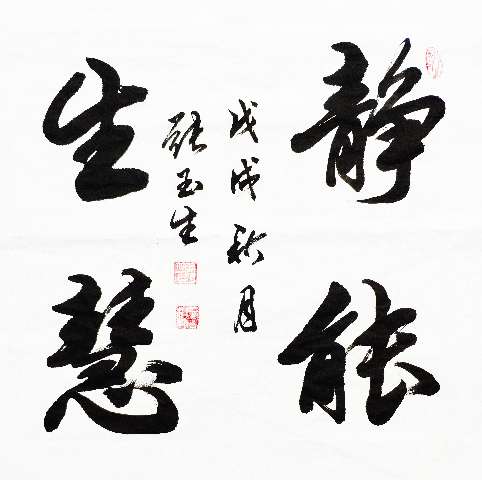 静能
生慧
戊戌秋月
张玉生